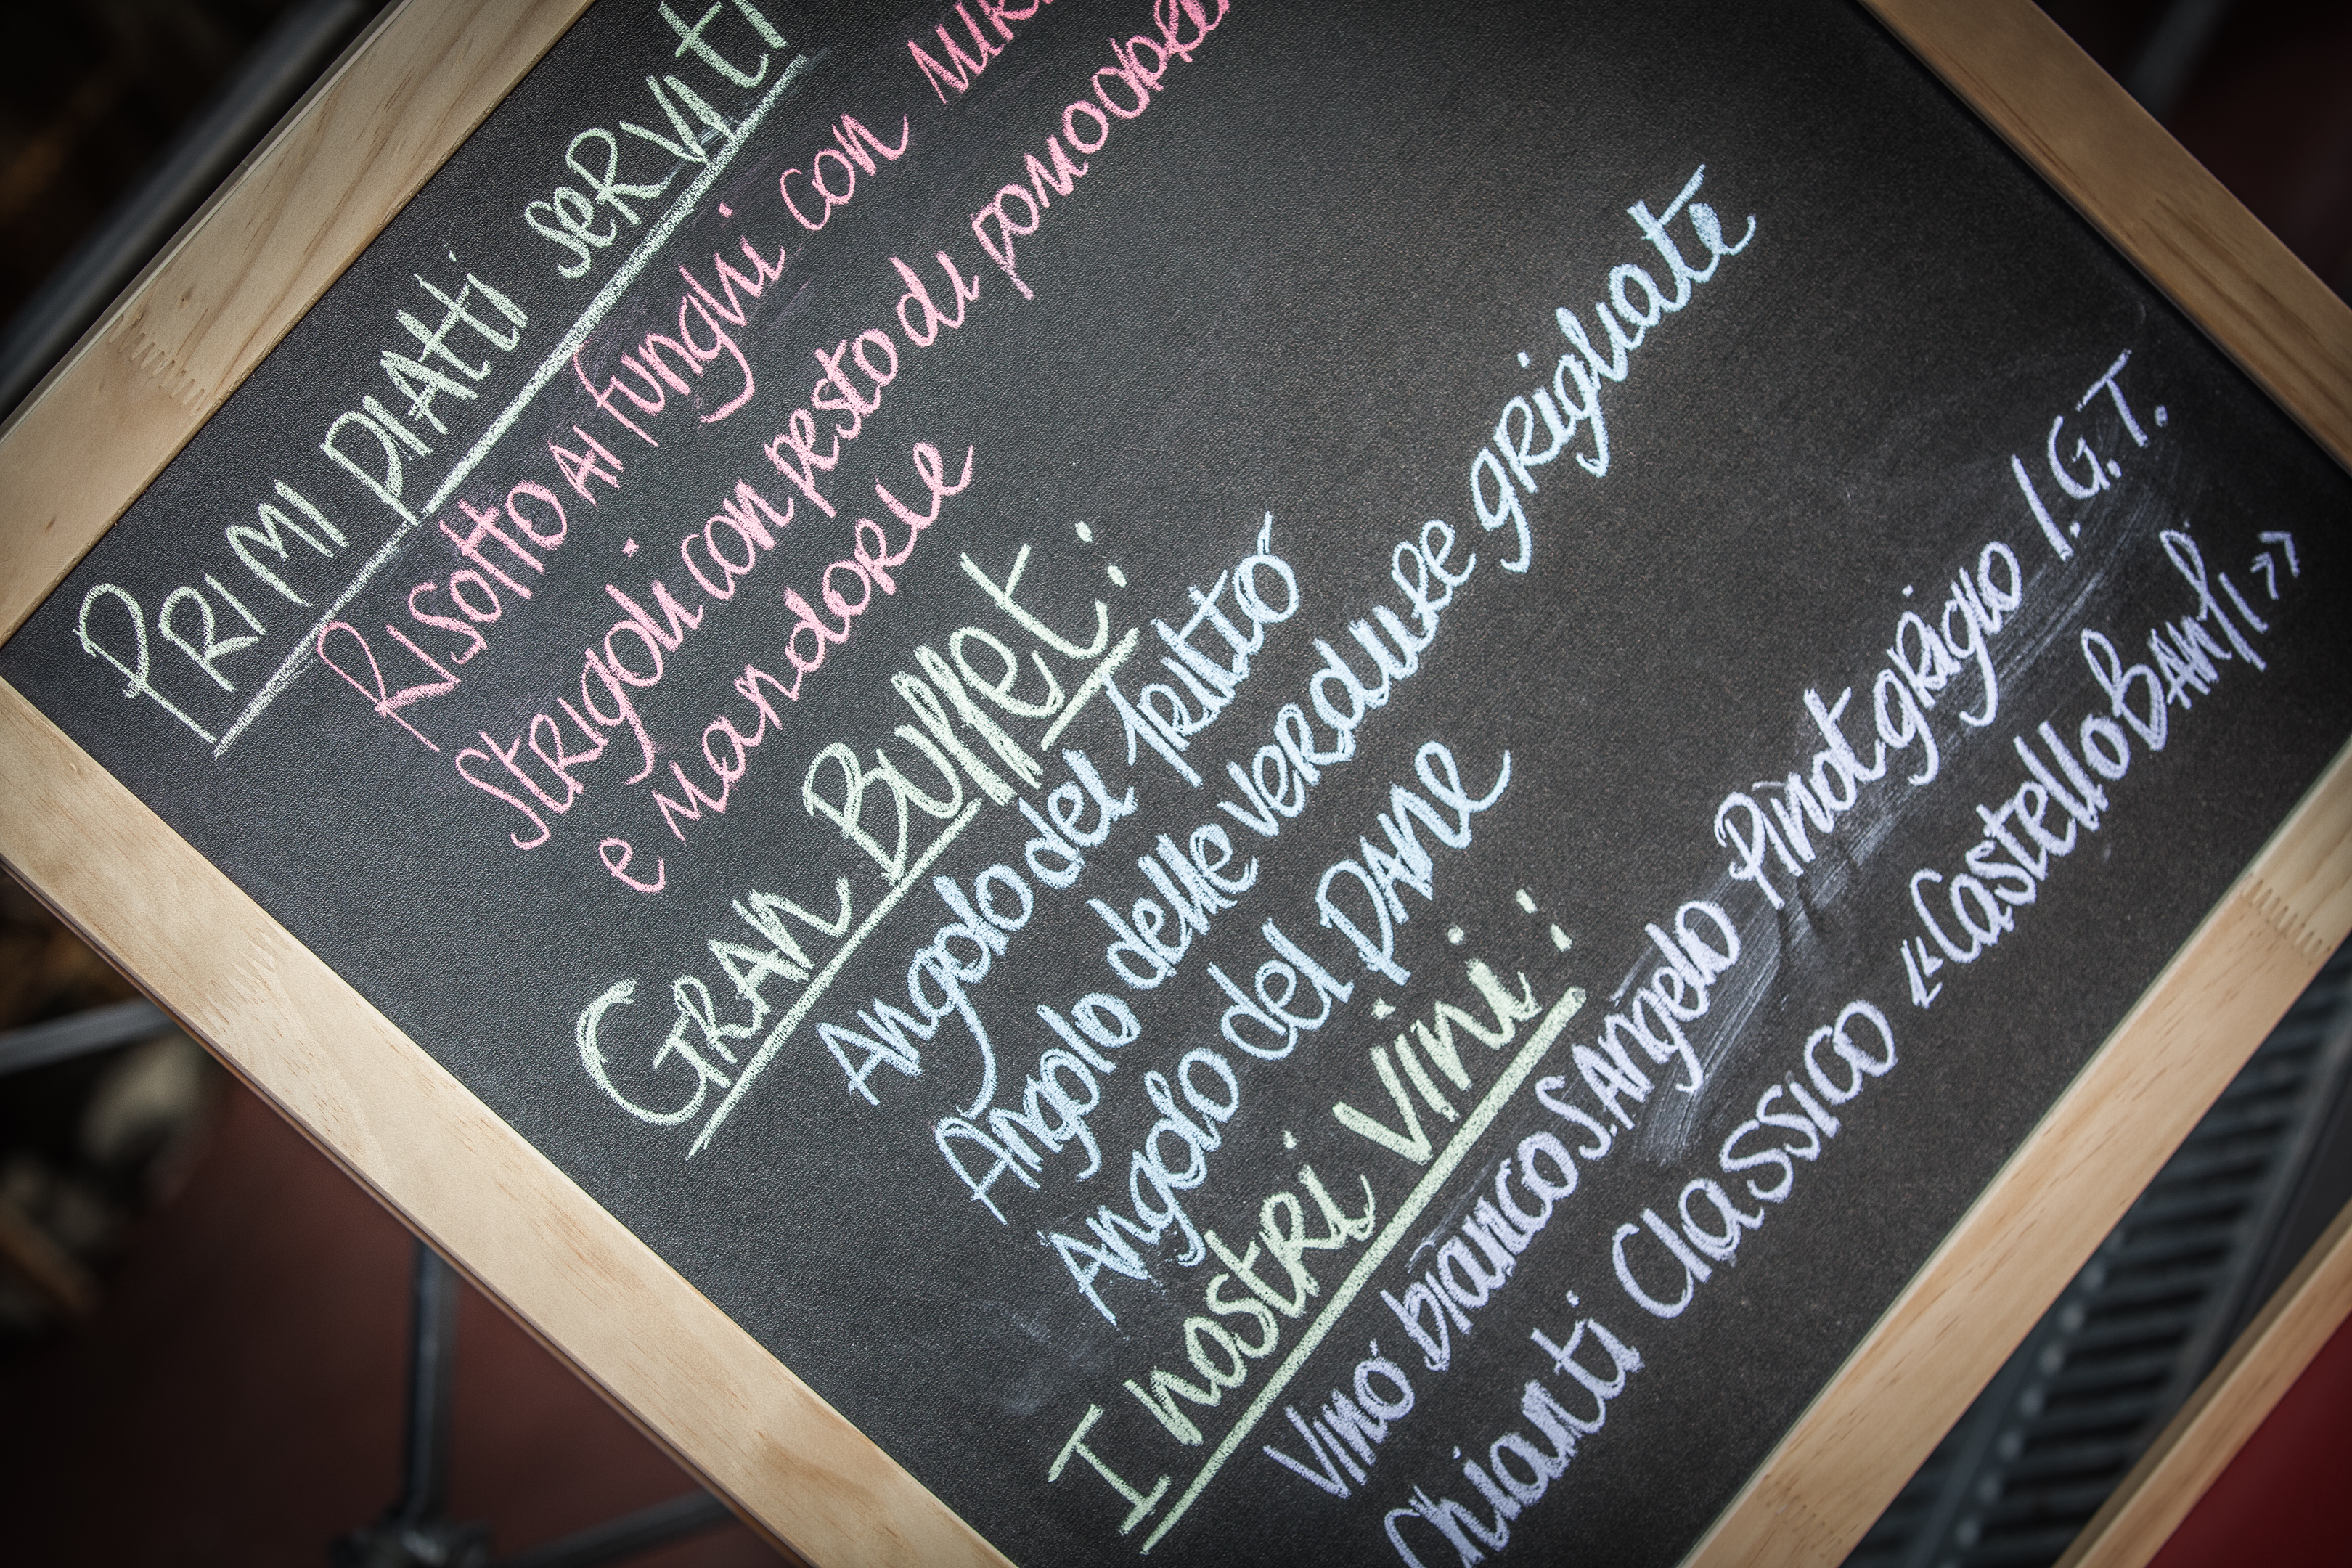 PRIMI PIATTI SERVITI
RISOTTO AI funghi con MIR
STRIGOLI con pesto di pomodori
e MANDORLE
GRAN Buffet:
Angolo del fritto
Angolo delle verdure grigliate
Angolo del PANE
I nostri Vini:
Vino bianco S. Angelo Pinot grigio I.G.T.
Chianti Classico «Castello Banfi»